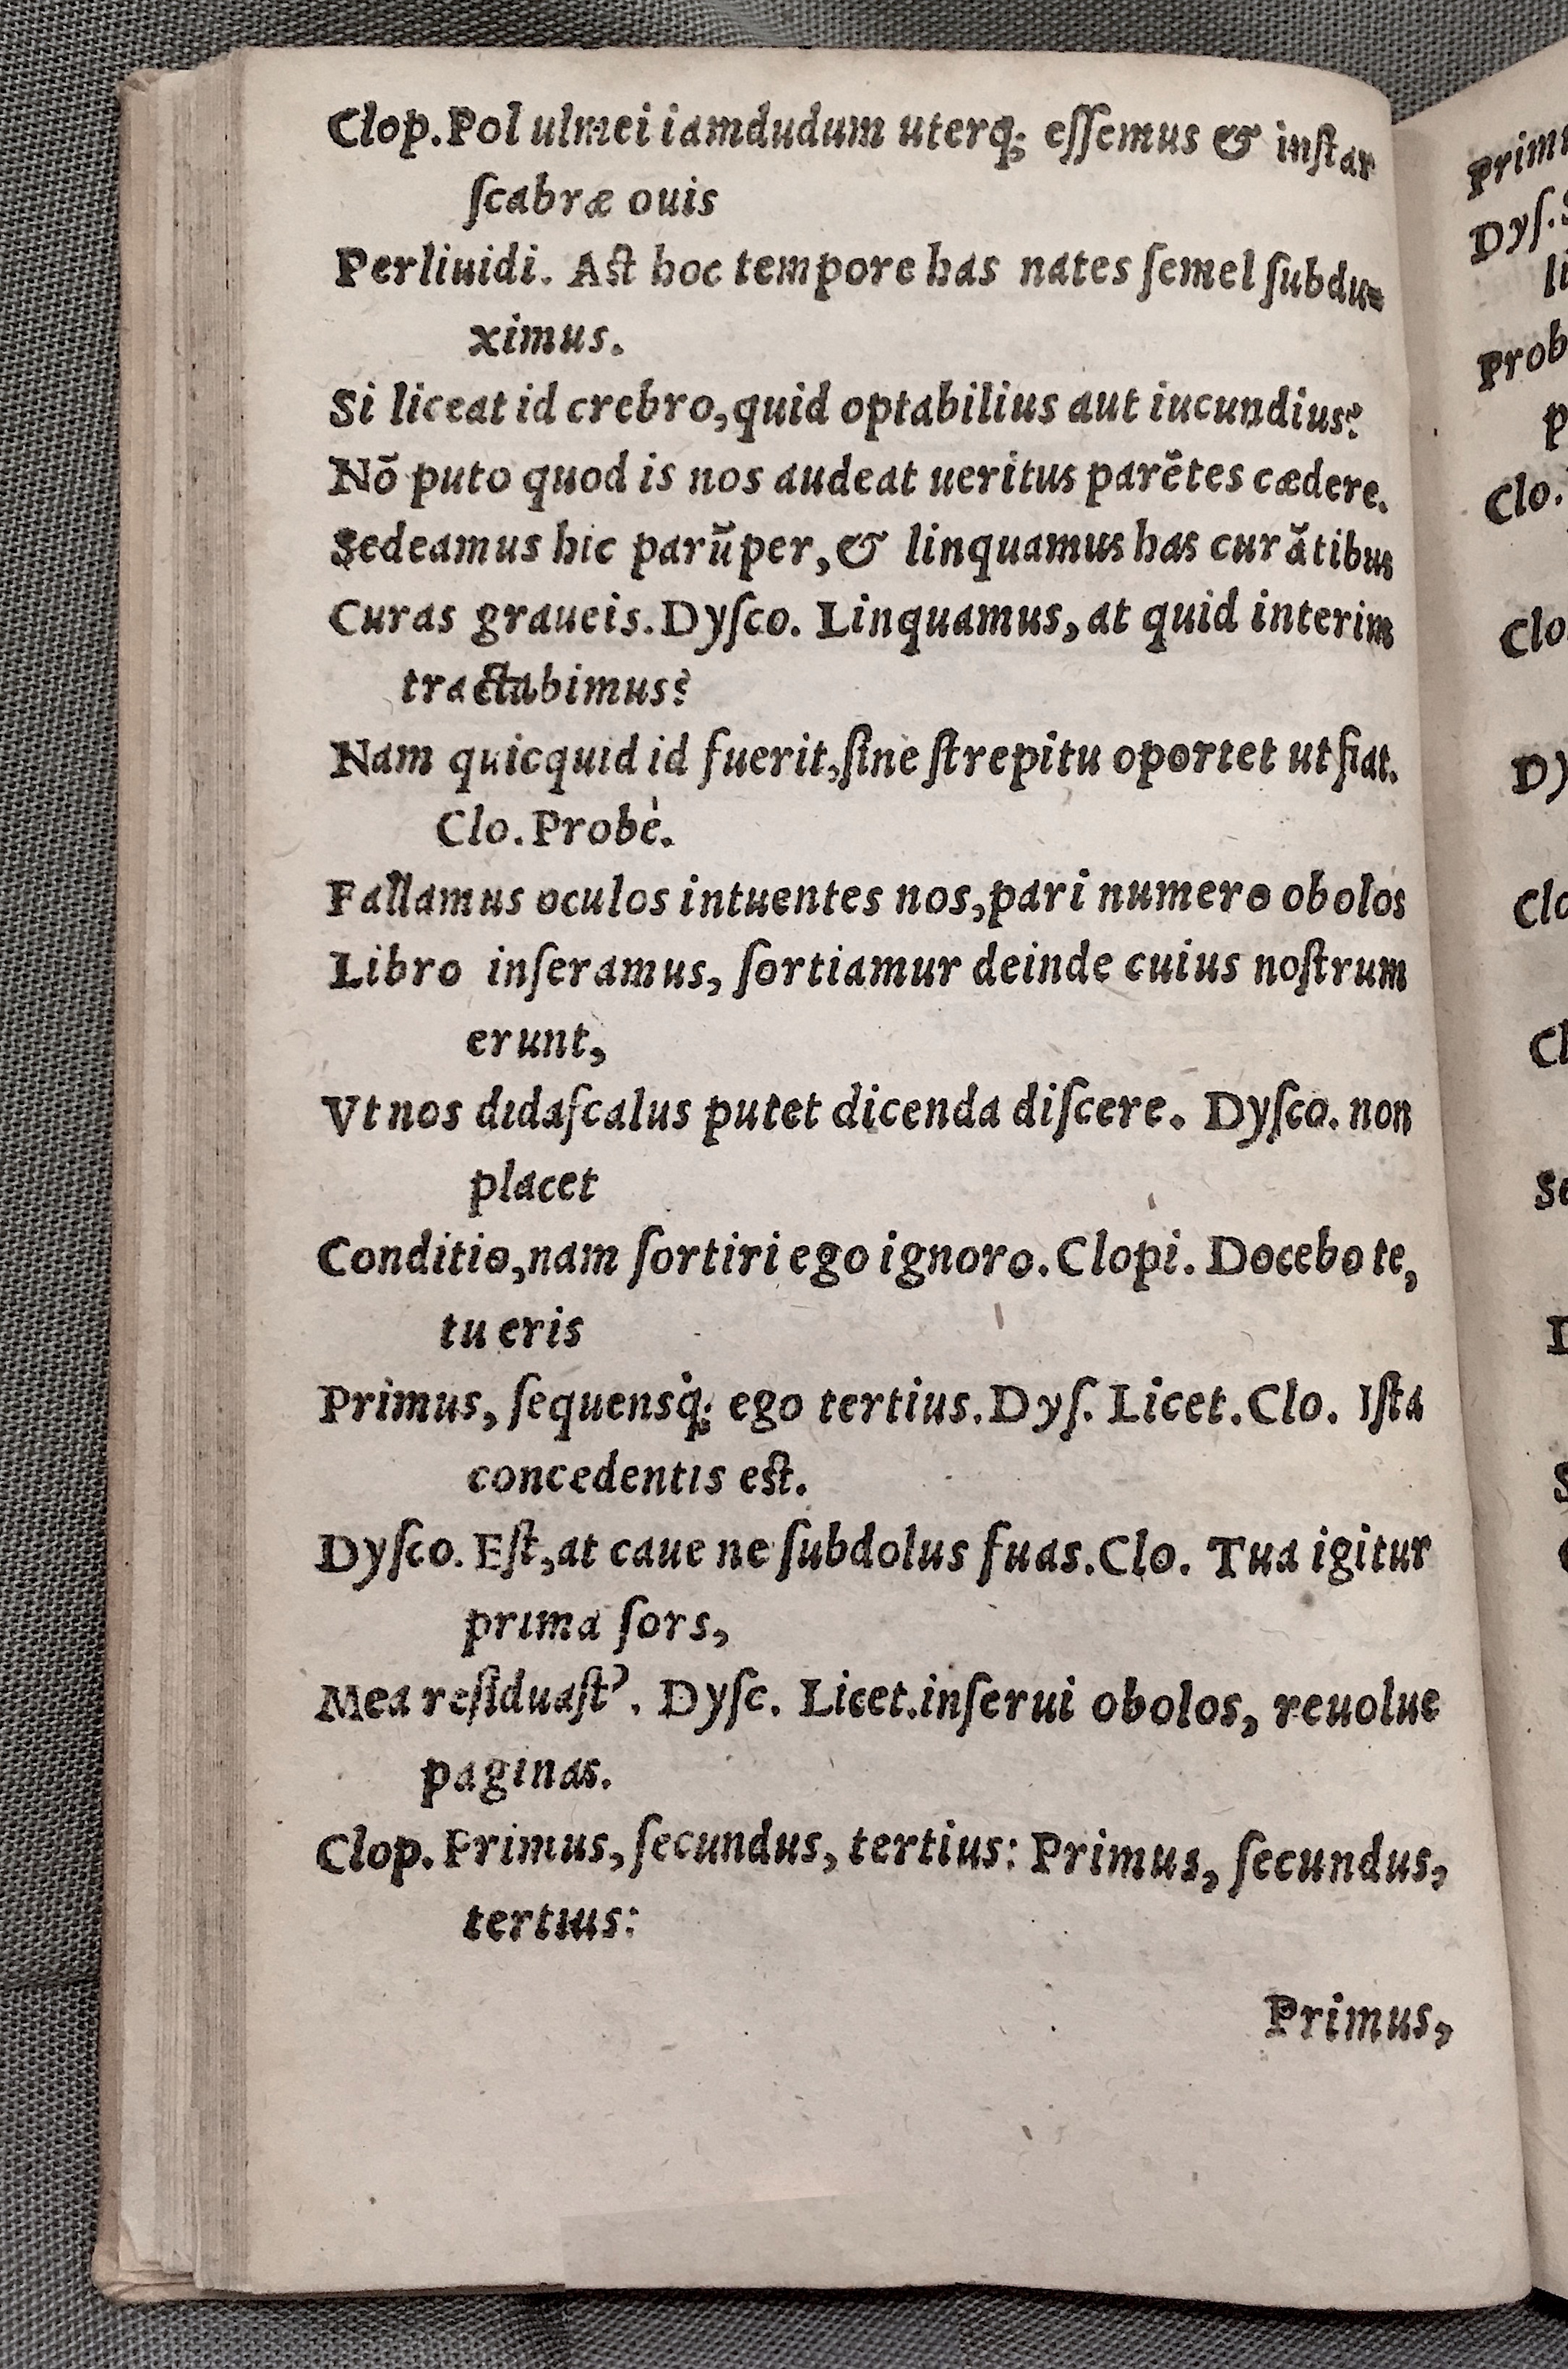 Clop. Pol ulmei iamdudum uterq; eſſemus & inſtar
ſcabræ ouis
Perliuidi. Aſt hoc tempore has nates ſemel ſubdu-
ximus.
Si liceat id crebro, quid optabilius aut iucundius?
Nõ puto quod is nos audeat ueritus parẽtes cædere.
Sedeamus hic parũper, & linquamus has curãtibus
Curas graueis. Dyſco. Linquamus, at quid interim
tractabimus?
Nam quicquid id fuerit, ſine ſtrepitu oportet ut fiat.
Clo. Probè.
Fallamus oculos intuentes nos, pari numero obolos
Libro inſeramus, ſortiamur deinde cuius noſtrum
erunt,
Vt nos didaſcalus putet dicenda diſcere. Dyſco. non
placet
Conditio, nam ſortiri ego ignoro. Clopi. Docebo te,
tu eris
Primus, ſequensq́; ego tertius. Dyſ. Licet. Clo. Iſta
concedentis eſt.
Dyſco. Eſt, at caue ne ſubdolus fuas. Clo. Tua igitur
prima ſors,
Mea reſiduaſt'. Dyſc. Licet. inſerui obolos, reuolue
paginas.
Clop. Primus, ſecundus, tertius: Primus, ſecundus,
tertius:
Primus,
primu
Dyſ.
li
Prob
p
Clo.
Clo
Dy
Clo
Cl
Se